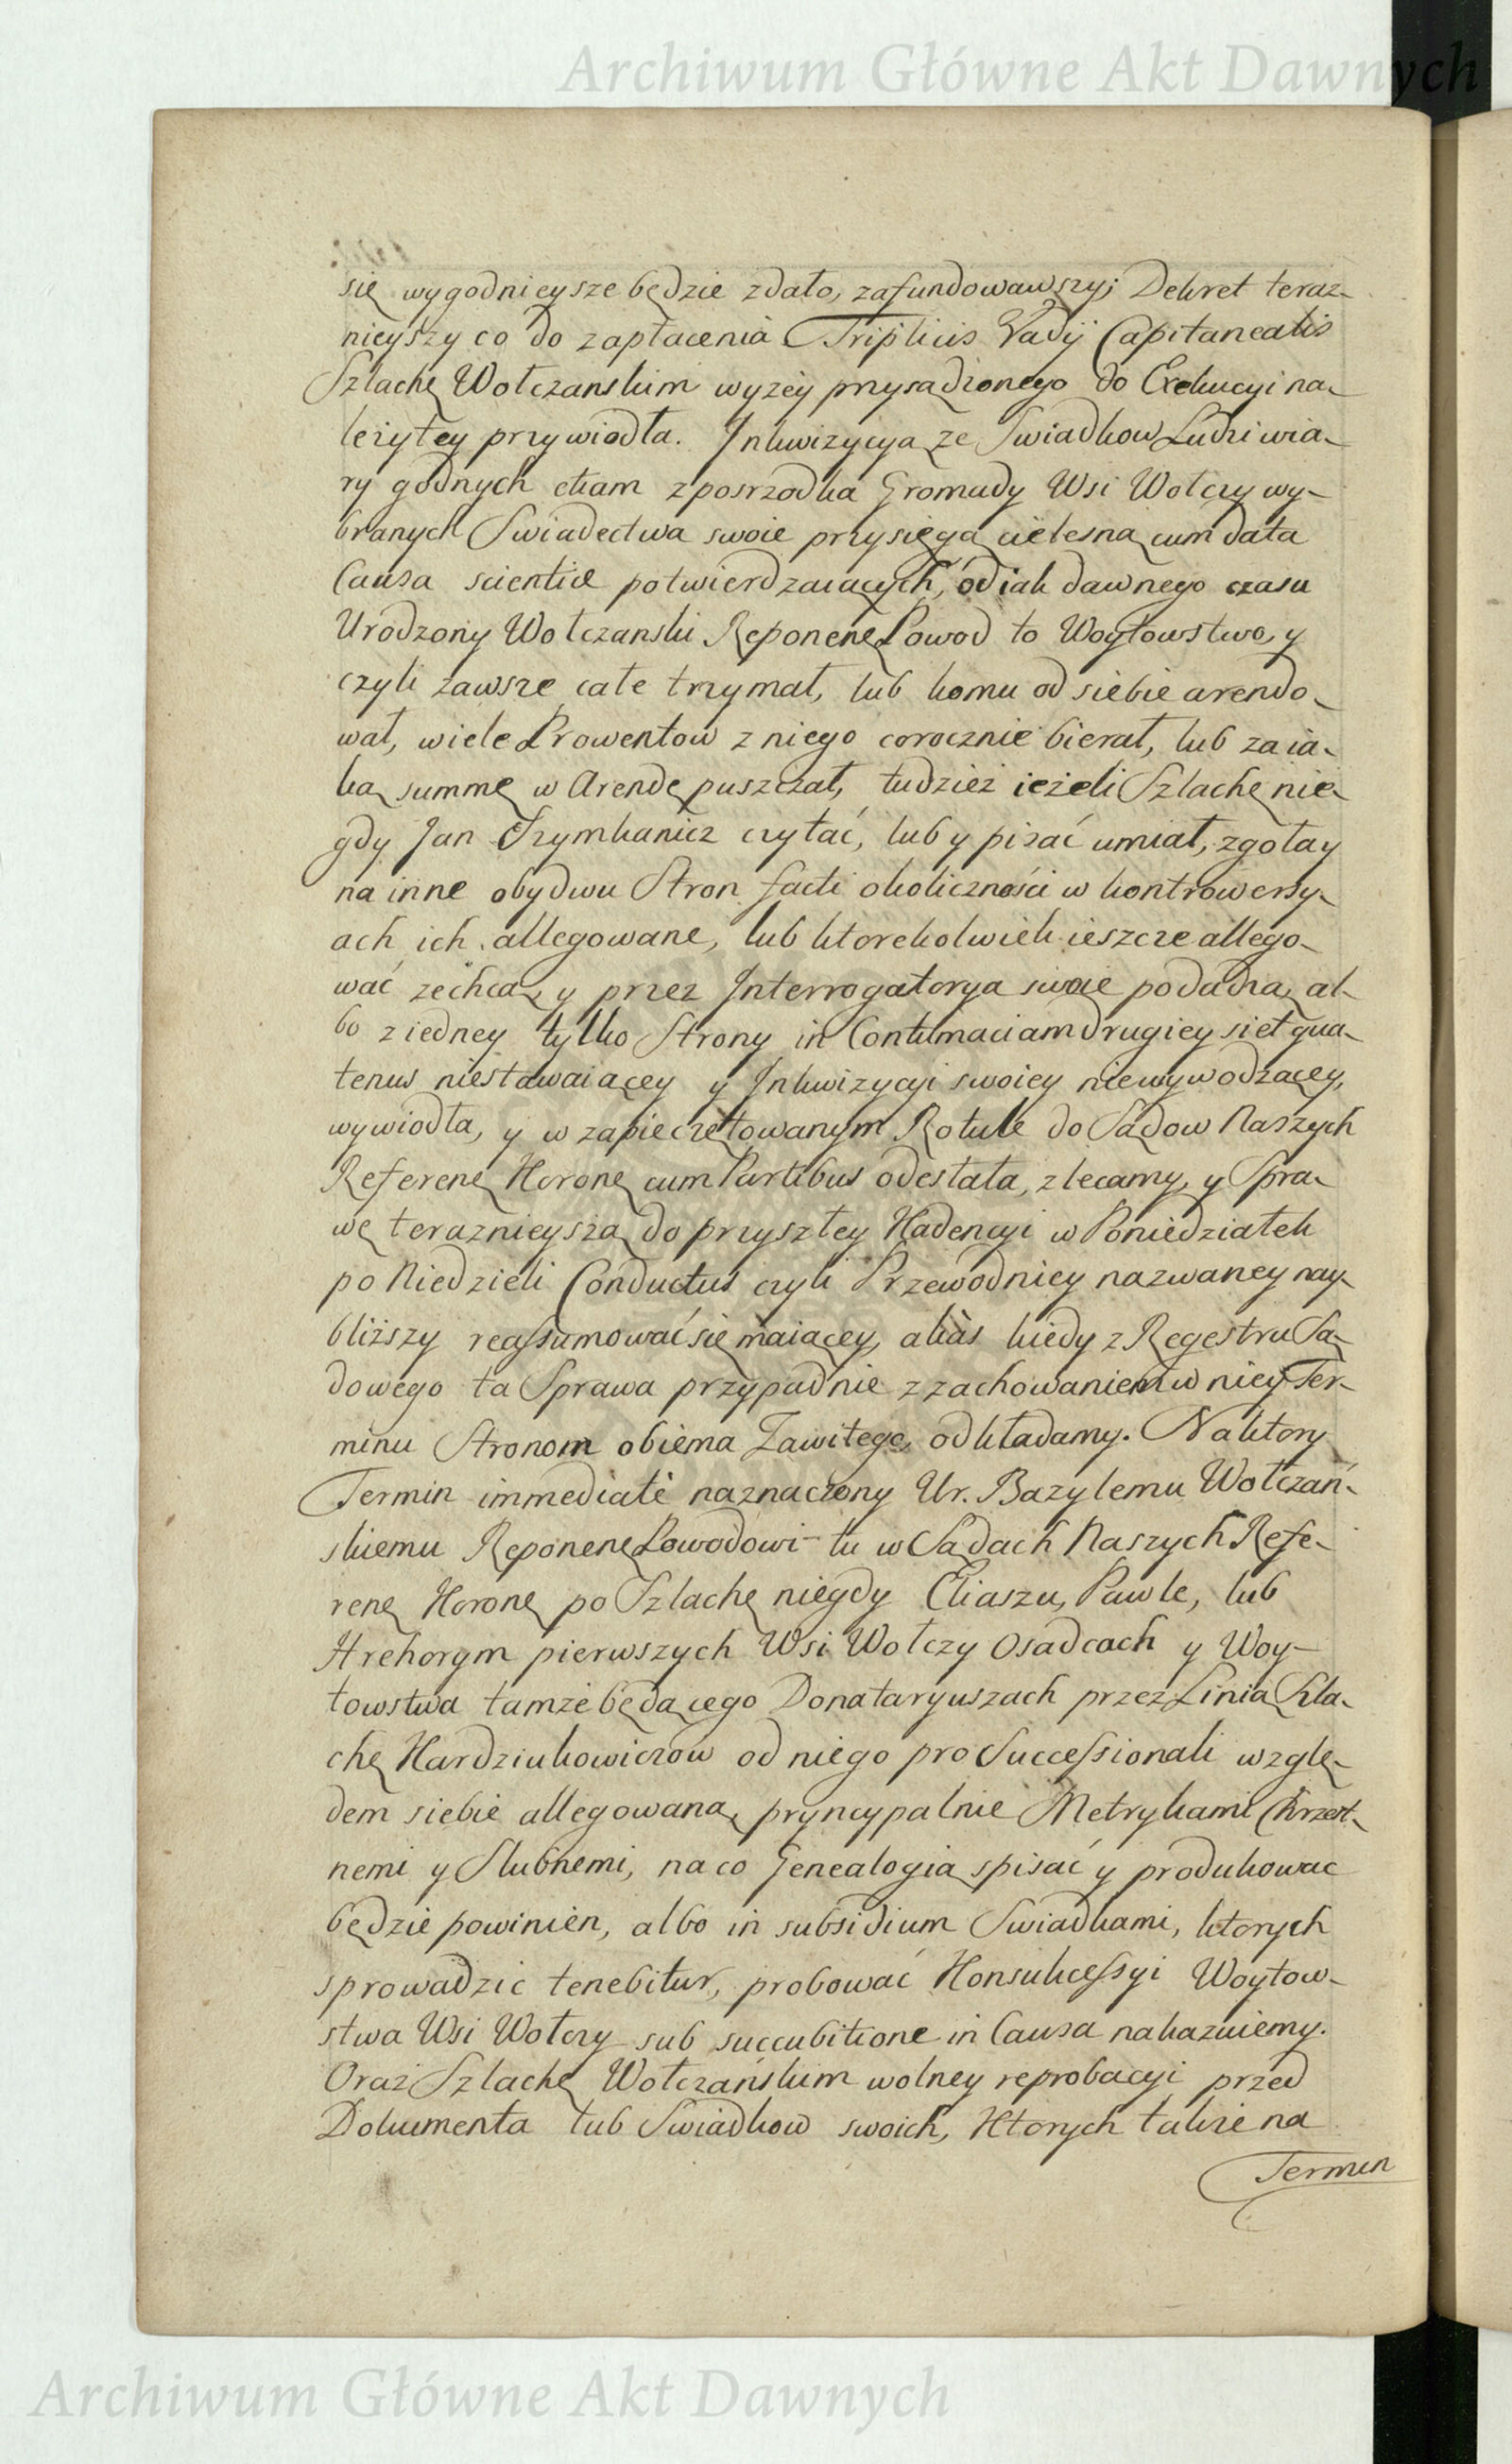 Archiwum Główne Akt Dawnych
się wygodnieysze będzie zdało, zafundowawszy; Dekret teraz-
nieyszy co do zapłacenia Triplicis Vadij Capitanealis
Szlachę Wołczanskim wyzey przysądzonego do Exekucyi na-
leżytey przywiodła. Inkwizycyą ze Swiadkow Ludzi wia-
ry godnych etiam zposrzodka Gromady Wsi Wołczy wy-
branych Swiadectwa swoie przysięgą cielesną cum data
Causa scientiæ potwierdzaiących, od iak dawnego czasu
Urodzony Wołczanski Reponenę Powod to Woytowstwo, y
czyli zawsze całe trzymał, lub komu od siebie arendo-
wał, wiele Prowentow z niego corocznie bierał, lub za ia-
ką summę w Arendę puszczał, tudzież ieżeli Szlachę nie-
gdy Jan Szymkanicz czytać, lub y pisać umiał, zgoła y
na inne obydwu Stron facti okoliczności w kontrowersy-
ach ich allegowane, lub ktorekolwiek ieszcze allego-
wać zechcą, y przez Interrogatorya swoie podadzą, al-
bo z iedney tylko Strony in Contumaciam drugiey siet qua-
tenus niestawaiącey y Inkwizycyi swoiey niewywodzącey,
wywiodła, y w zapieczętowanym Rotule do Sądow Naszych
Referenę Koronę cum Partibus odesłała, zlecamy, y Spra-
wę teraznieyszą do przyszłey Kadencyi w Poniedziałek
po Niedzieli Conductus czyli Przewodniey nazwaney nay-
bliższy reassumować się maiącey, alias kiedy z Regestru Są-
dowego ta Sprawa przypadnie z zachowaniem w niey Ter-
minu Stronom obiema Zawitego, odkładamy. Na ktory
Termin immediatè naznaczony Ur. Bazylemu Wołczań-
skiemu Reponenę Powodowi tu w Sądach Naszych Refe-
renę Koronę po Szlachę niegdy Eliaszu, Pawle, lub
Hrehorym pierwszych Wsi Wołczy Osadcach y Woy-
towstwa tamże będącego Donataryuszach przez Linią Szla-
chę Hardziukowiczow od niego pro Successionali wzglę-
dem siebie allegowaną, pryncypalnie Metrykami Chrzest-
nemi y Slubnemi, na co Genealogią spisać y produkowac
będzie powinien, albo in subsidium Swiadkami, ktorych
sprowadzic tenebitur, probować Konsukcessyi Woytow-
stwa Wsi Wołczy sub succubitione in Causa nakazuiemy.
Oraz Szlachę Wołczańskim wolney reprobacyi przed
Dokumenta lub Swiadkow swoich, Ktorych także na
Termin
Archiwum Główne Akt Dawnych